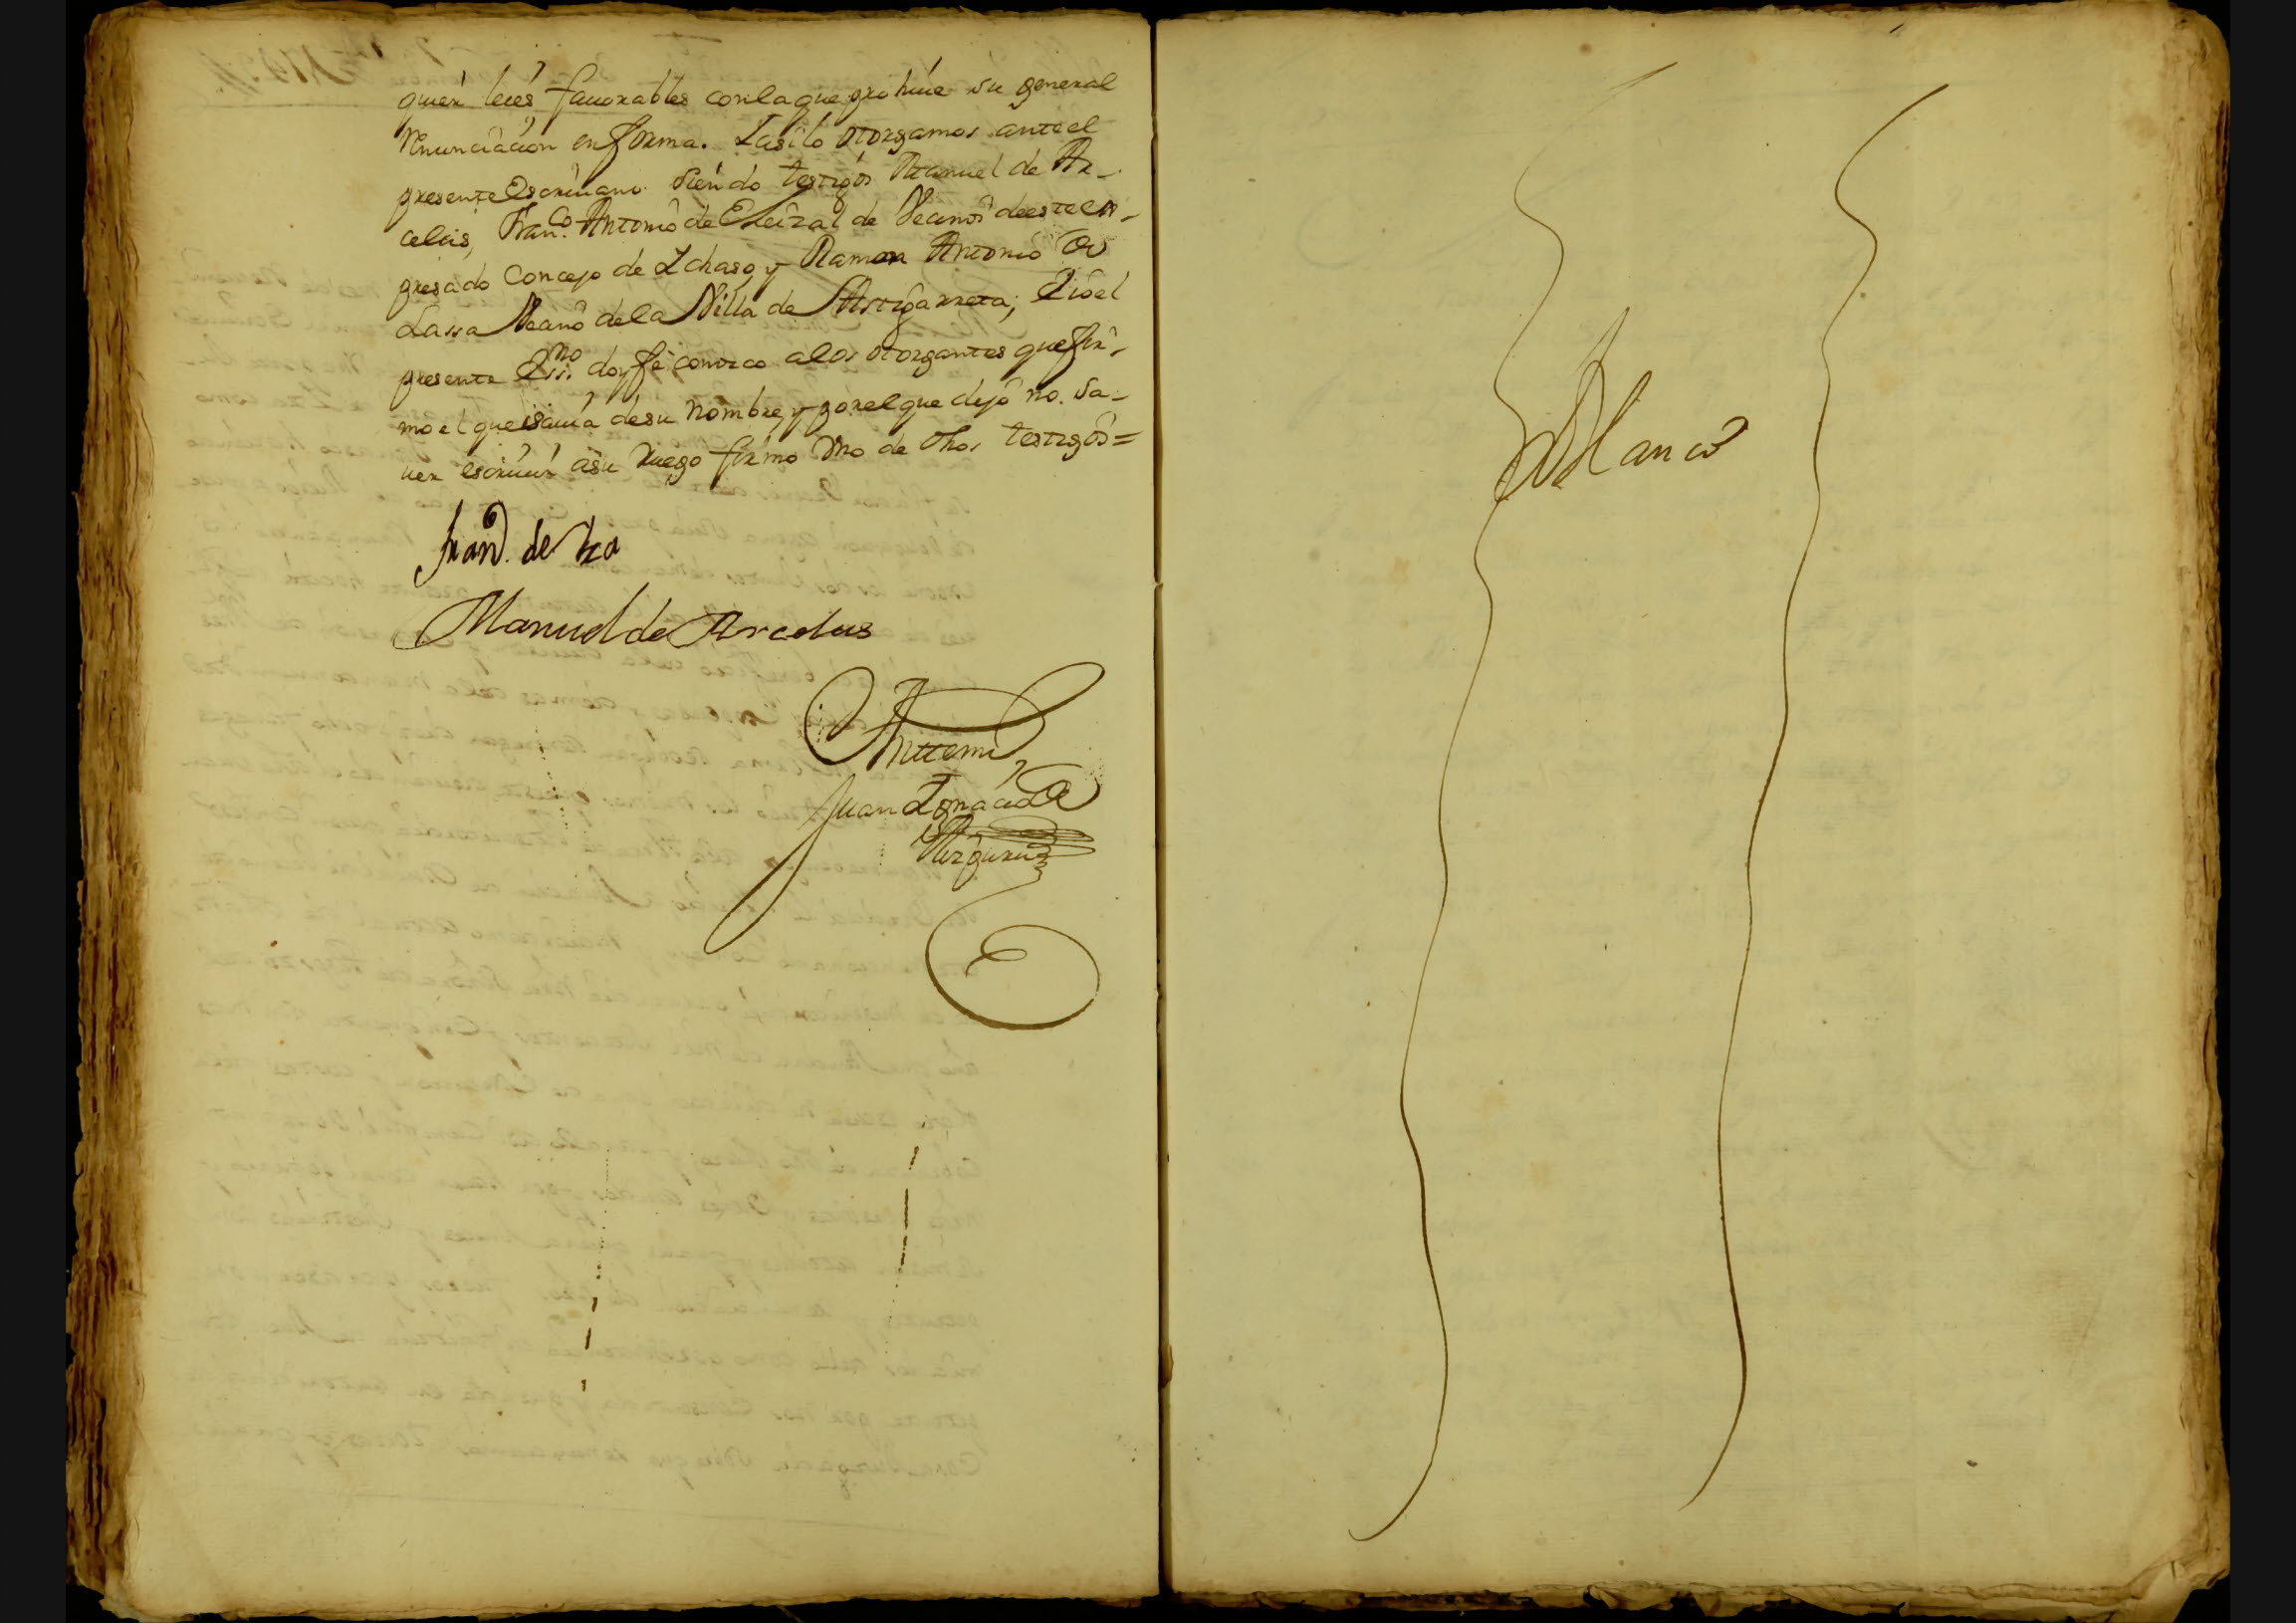 quier leies favorables con la que prohive su general
renunciacion en forma. I asi lo otorgamos ante el
presente Escrivano siendo testigos Manuel de Ar-
celus, Fran.co Antonio de Eleizal de Vecinos de este ex-
presado Concejo de Ichaso y Ramon Antonio de
Lassa Vecino de la Villa de Astigarreta; Iio el
presente Ess.no doy fe conozco a los otorgantes que fir-
mo el que savia de su nombre, y por el que dijo no sa-
ver escrivir a su ruego firmo Vno de dhos testigos=
Juan de
Manuel de Arcelus
Antte mi
Juan Ignacio de
Blanco